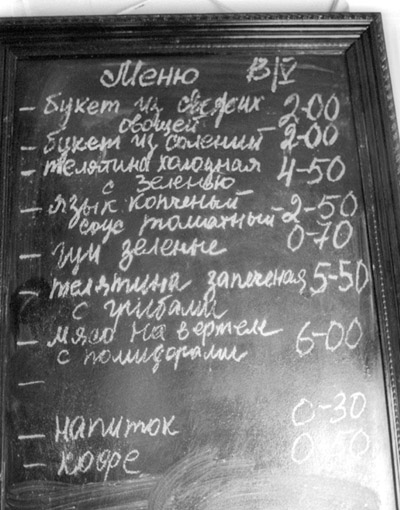 Меню В/V
– букет из свежих 2-00
овощей
– букет из солений – 2-00
– телятина холодная 4-50
с зеленью
– язык копченый – 2-50
соус томатный
– щи зеленые 0-70
– телятина запеченая 5-50
с грибами
– мясо на вертеле 6-00
с помидорами
–
– напиток 0-30
– кофе 0-50